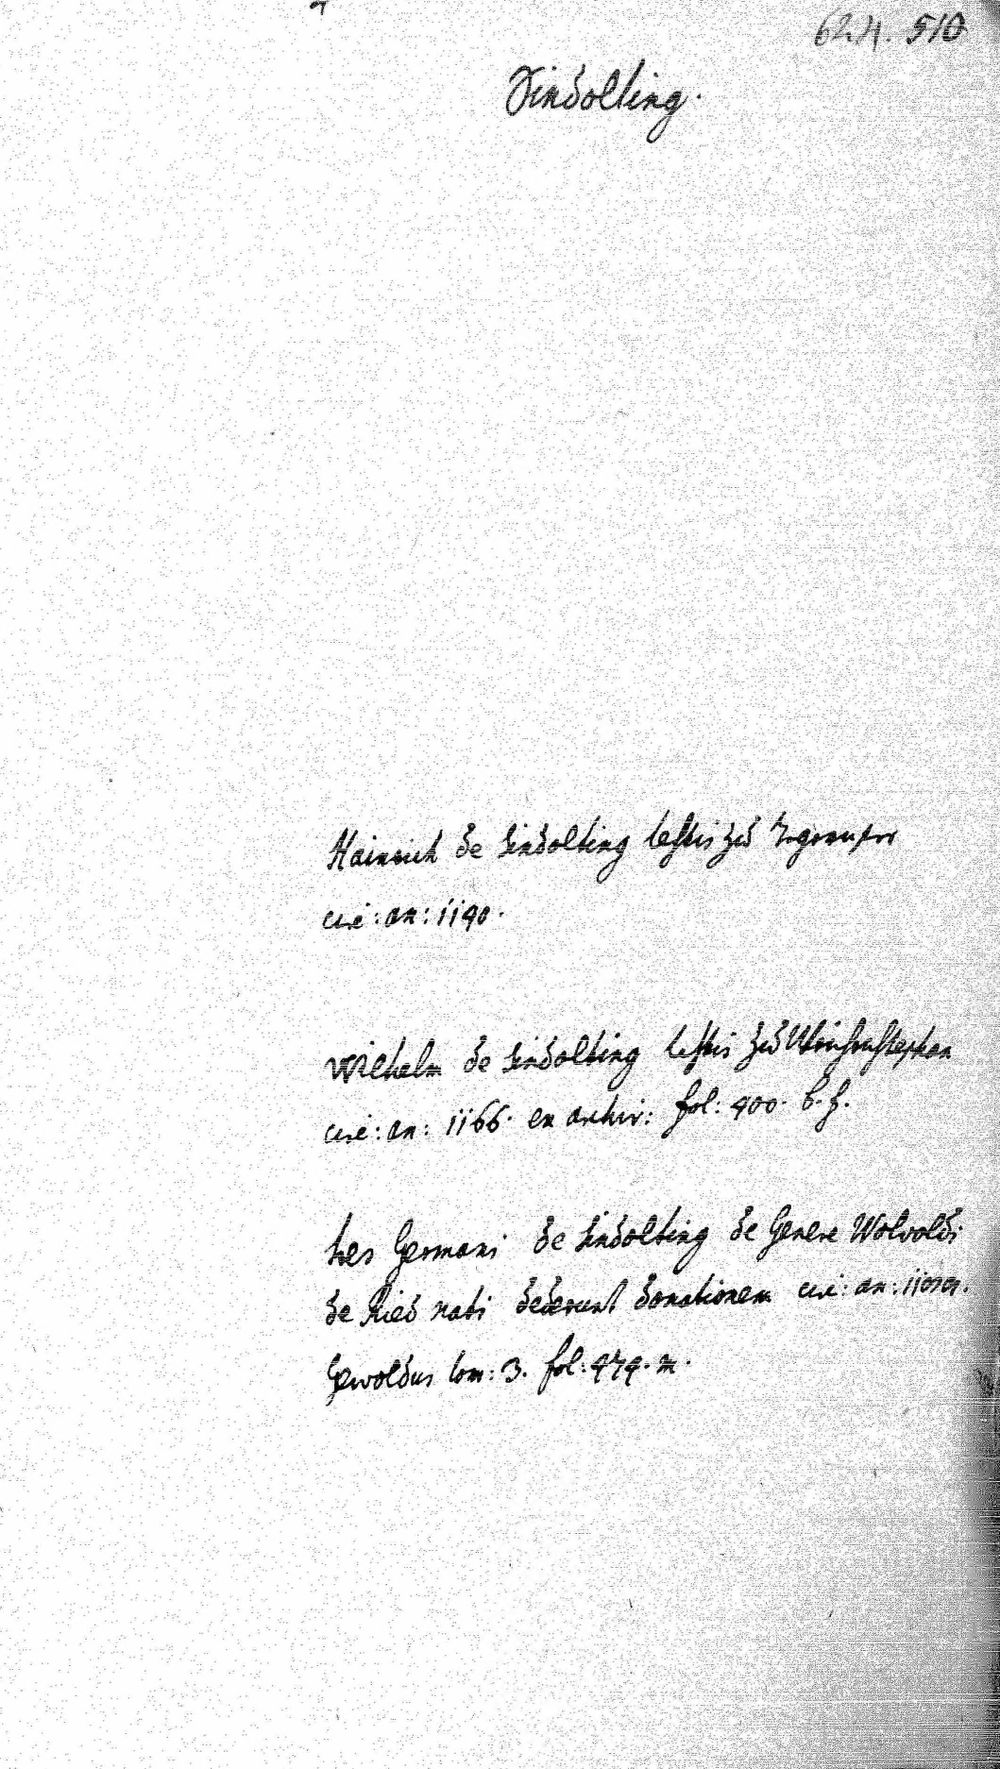 624. 510
Sindolting.
Hainrich de Sindolting testis zu Tegernsee
circ: an: 1190.
Wilhelm de Sindolting testis zu Weihenstephan
circ: an: 1166. ex archiv: fol: 400. b. f.
tres Germani de Sindolting de Genere Wolvoldi
de Ried nati dederunt donationem circ: an:
Gewoldus tom: 3. fol: 474. m.